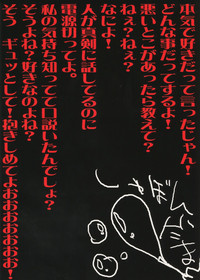 本気で好きだって言ったじゃん!
どんな事だってするよ!
悪いとこがあったら教えて?
ねぇ?ねぇ?
なによ!
人が真剣に話してるのに
電源切ってよ。
私の気持ち知ってて口説いたんでしょ?
そうよね?好きなのよね?
そう ギュッとして!抱きしめてよおおおおおおお!